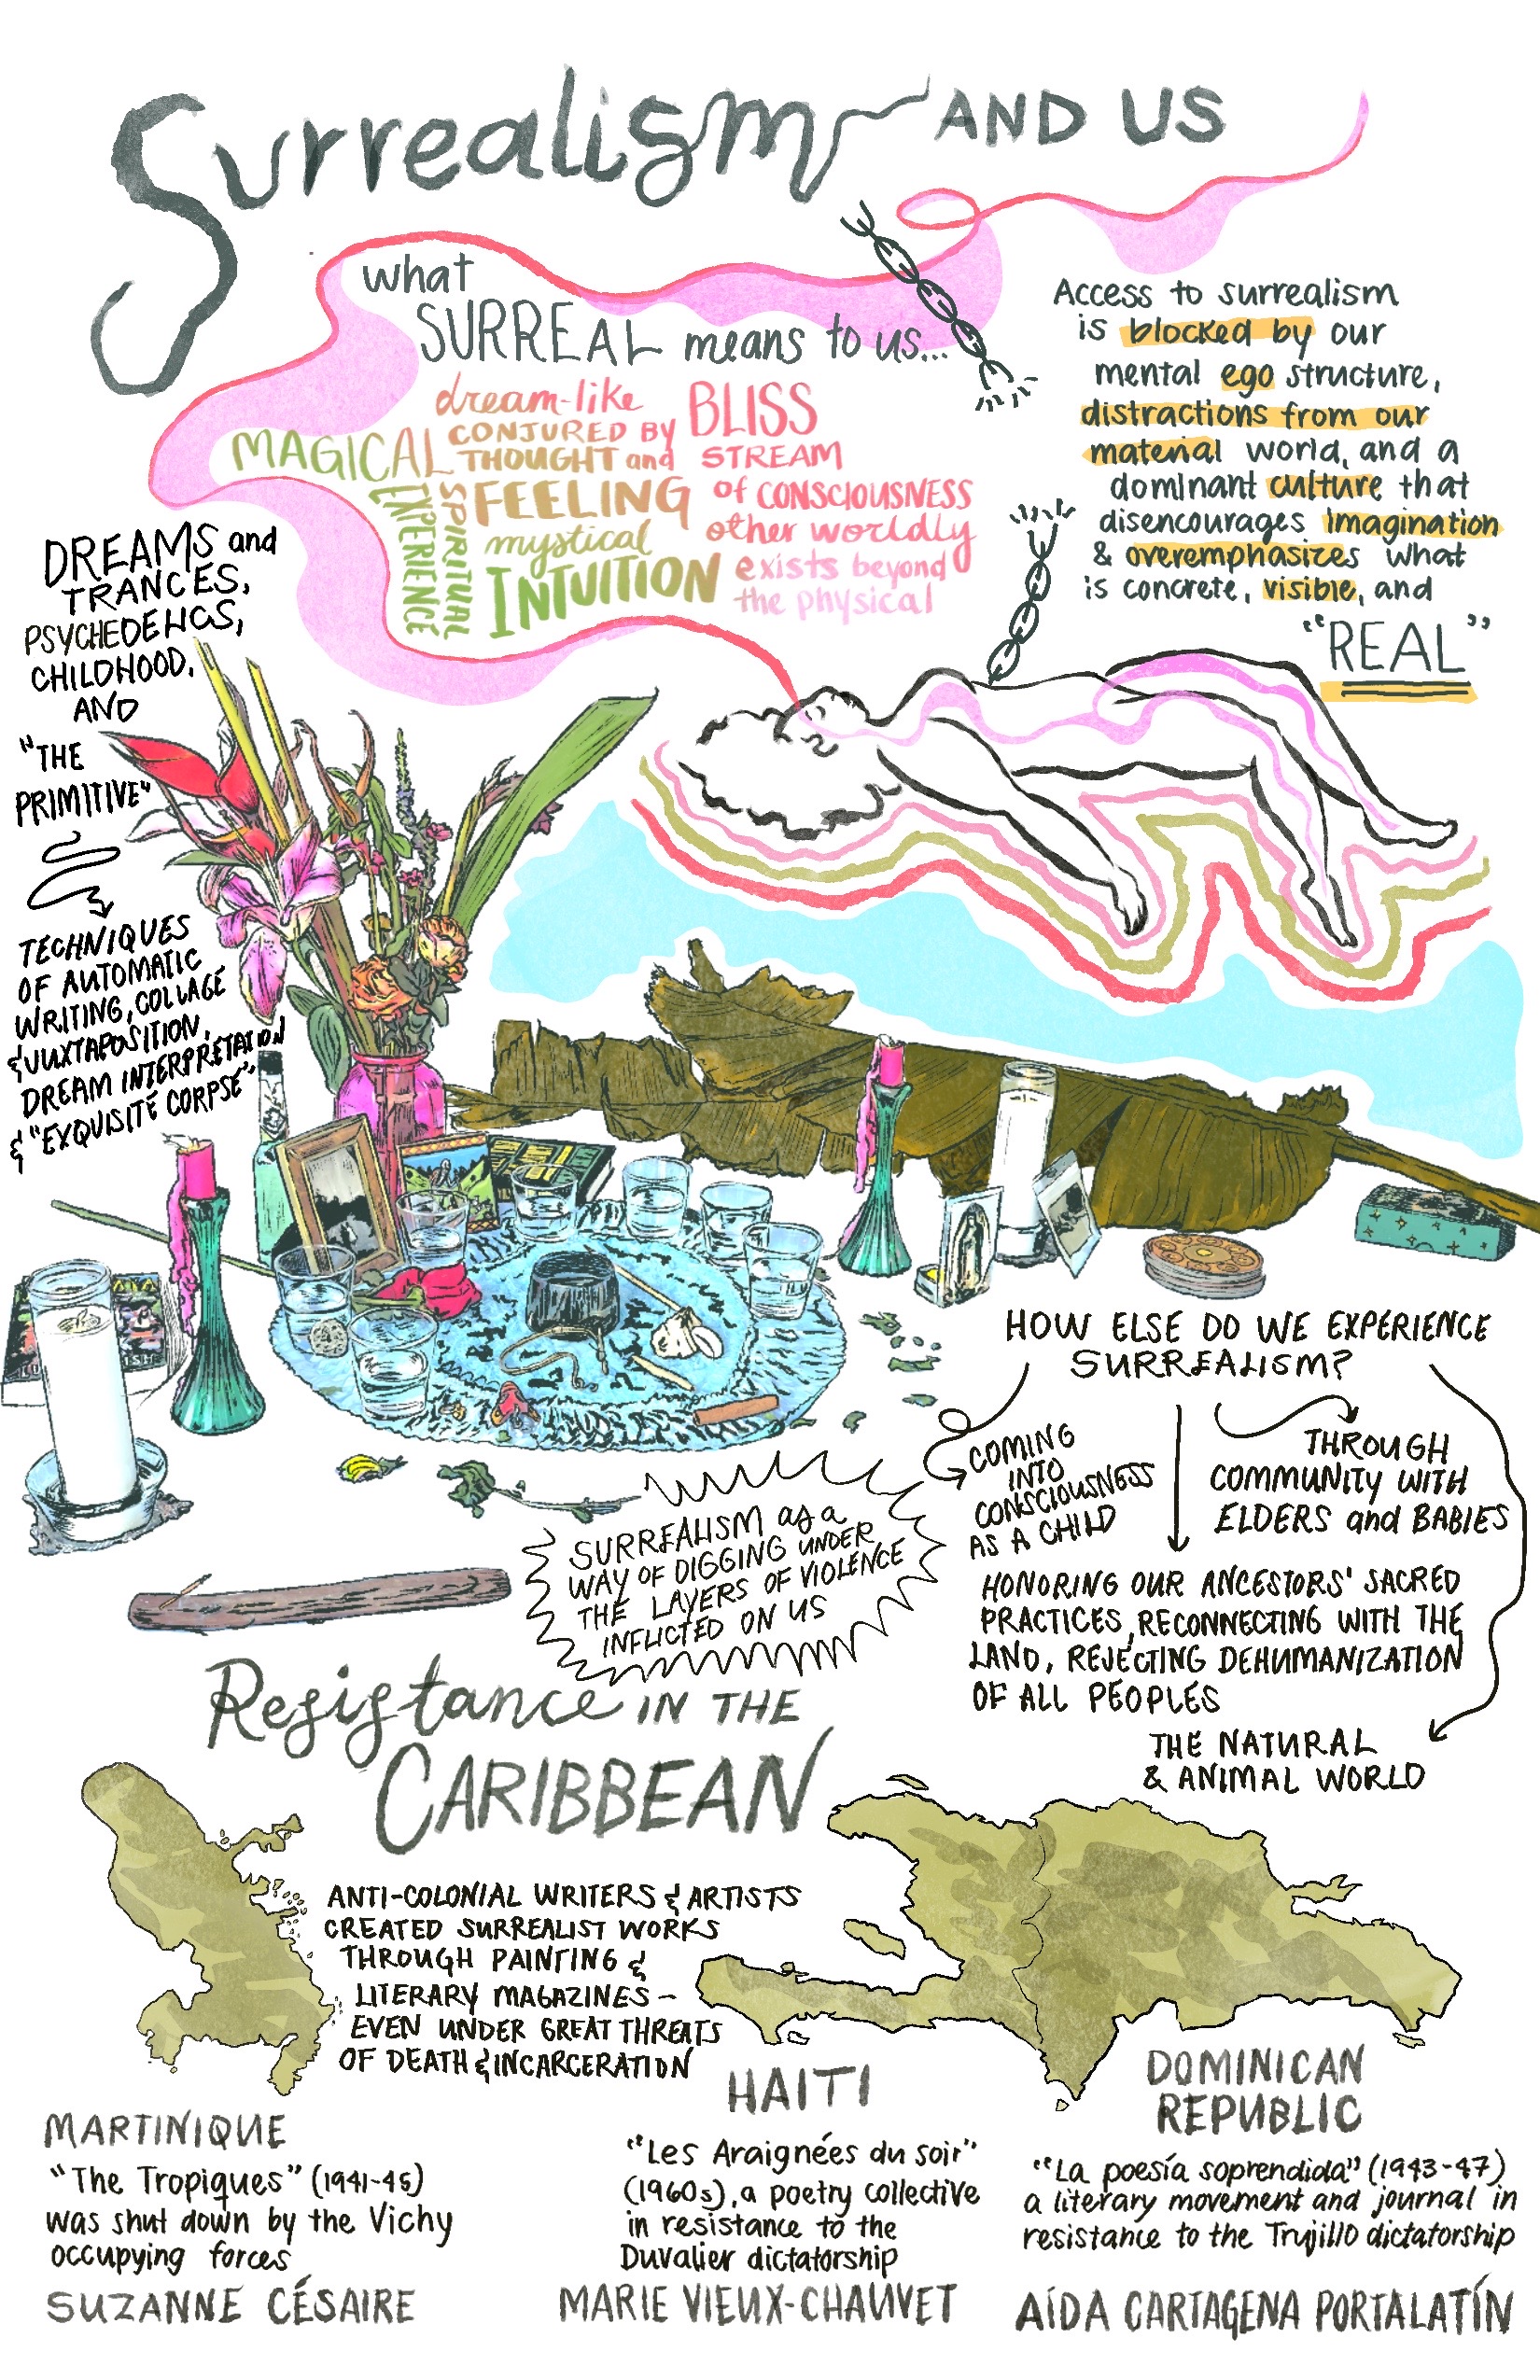 Surrealism AND US
what
SURREAL means to us...
dream-like
BLISS
MAGICAL
CONJURED BY
THOUGHT and
FEELING
STREAM
of CONSCIOUSNESS
SPIRITUAL
EXPERIENCE
mystical
INTUITION
other worldly
exists beyond
the physical
Access to surrealism
is blocked by our
mental ego structure,
distractions from our
material world, and a
dominant culture that
disencourages imagination
& overemphasizes what
is concrete, visible, and
"REAL"
DREAMS and
TRANCES,
PSYCHEDELICS,
CHILDHOOD,
AND
"THE
PRIMITIVE"
TECHNIQUES
OF AUTOMATIC
WRITING, COLLAGE
& JUXTAPOSITION,
DREAM INTERPRETATION
& "EXQUISITE CORPSE"
HOW ELSE DO WE EXPERIENCE
SURREALISM?
COMING
INTO
CONSCIOUSNESS
AS A CHILD
THROUGH
COMMUNITY WITH
ELDERS and BABIES
HONORING OUR ANCESTORS' SACRED
PRACTICES, RECONNECTING WITH THE
LAND, REJECTING DEHUMANIZATION
OF ALL PEOPLES
THE NATURAL
& ANIMAL WORLD
SURREALISM as a
WAY OF DIGGING UNDER
THE LAYERS OF VIOLENCE
INFLICTED ON US
Resistance IN THE
CARIBBEAN
ANTI-COLONIAL WRITERS & ARTISTS
CREATED SURREALIST WORKS
THROUGH PAINTING &
LITERARY MAGAZINES -
EVEN UNDER GREAT THREATS
OF DEATH & INCARCERATION
MARTINIQUE
"The Tropiques" (1941-45)
was shut down by the Vichy
occupying forces
SUZANNE CÉSAIRE
HAITI
"Les Araignées du soir"
(1960s), a poetry collective
in resistance to the
Duvalier dictatorship
MARIE VIEUX-CHAUVET
DOMINICAN
REPUBLIC
"La poesía soprendida" (1943-47)
a literary movement and journal in
resistance to the Trujillo dictatorship
AÍDA CARTAGENA PORTALATÍN